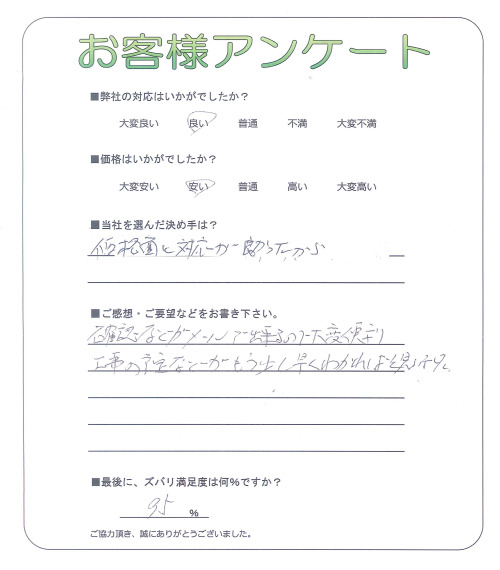 お客様アンケート
■弊社の対応はいかがでしたか？
大変良い 良い 普通 不満 大変不満
■価格はいかがでしたか？
大変安い 安い 普通 高い 大変高い
■当社を選んだ決め手は？
価格面と対応が良かったから
■ご感想・ご要望などをお書き下さい。
確認などがメールで出来るので大変便利
工事の予定などがもう少し早くわかれば
■最後に、ズバリ満足度は何％ですか？
95 ％
ご協力頂き、誠にありがとうございました。